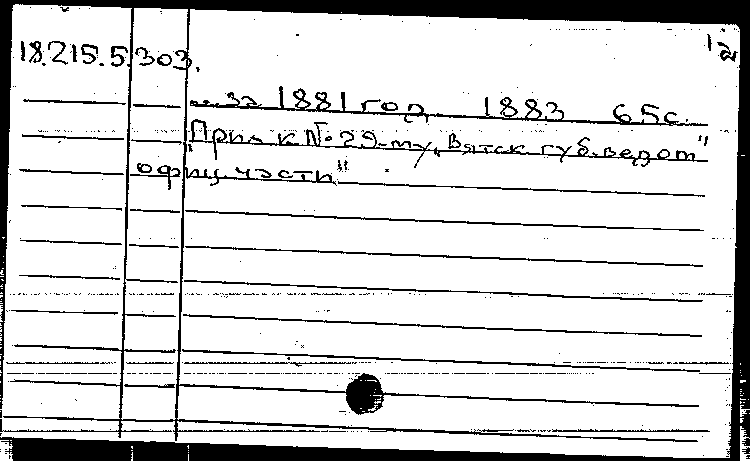 12
18.215.5.303.
... за 1881 год 1883 65с.
"Прил к №29-му „Вятск губ.ведом"
офиц. части"